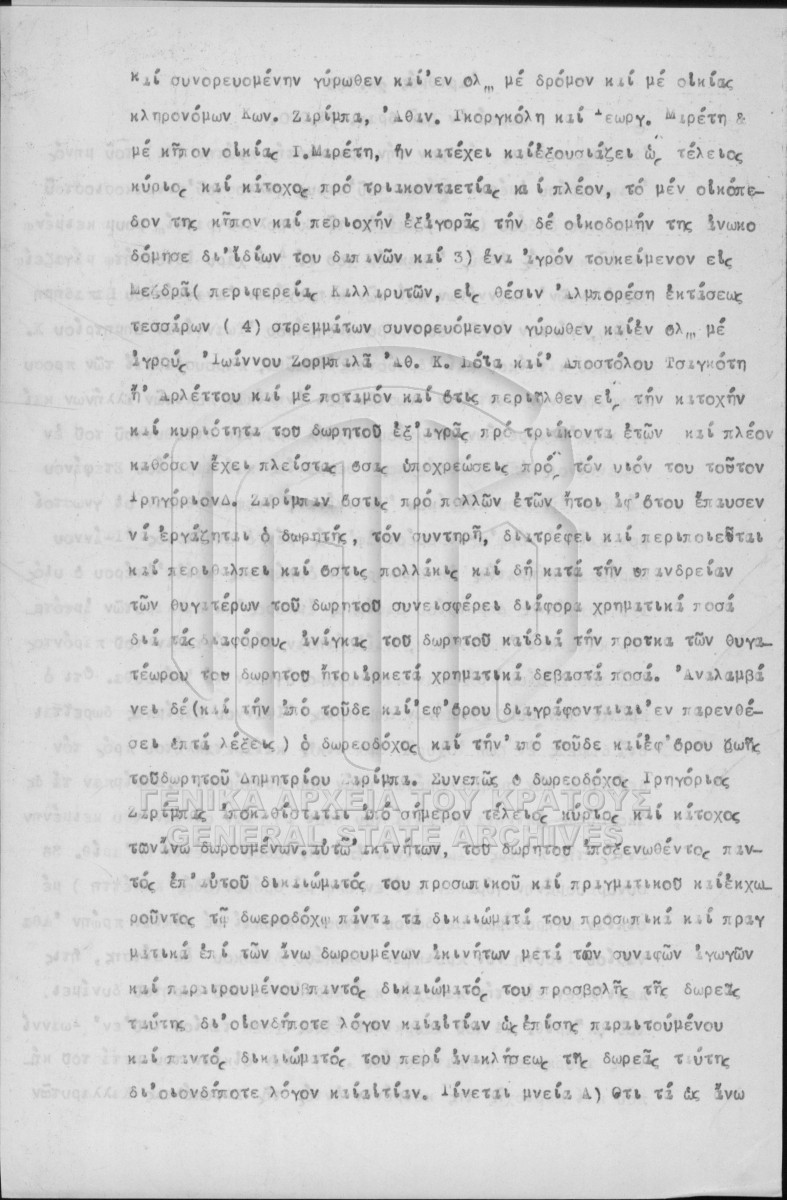 καί συνορευομένην γύρωθεν καί ἐν ὅλῳ μέ δρόμον καί μέ οἰκίας
κληρονόμων Κων. Ζαρίμπα, Ἀθαν. Γκοργκόλη καί Γεωργ. Μαρέτη &
μέ κῆπον οἰκίας Ι.Μαρέτη, ἥν κατέχει καί ἐξουσιάζει ὡς τέλειος
κύριος καί κάτοχος πρό τριακονταετίας καί πλέον, τό μέν οἰκόπε-
δον της κῆπον καί περιοχήν ἐξ ἀγορᾶς τήν δέ οἰκοδομήν της ἀνωκο
δόμησε δι' ἰδίων του δαπανῶν καί 3) ἕνα ἀγρόν του κείμενον εἰς
περιφερείας Καλλαρυτῶν, εἰς θέσιν ἐκτάσεως
τεσσάρων ( 4) στρεμμάτων συνορευόμενον γύρωθεν καί ἐν ὅλῳ μέ
ἀγρούς Ἰωάννου Ζορμπαλᾶ Ἀθ. Κ. Ἀποστόλου Τσαγκότη
ἤ Ἀρλέττου καί μέ ποταμόν καί ὅστις περιῆλθεν εἰς τήν κατοχήν
καί κυριότητα τοῦ δωρητοῦ ἐξ ἀγρᾶς πρό τριάκοντα ἐτῶν καί πλέον
καθόσον ἔχει πλείστας ὅσας ὑποχρεώσεις πρός τόν υἱόν του τοῦτον
Γρηγόριον Δ. Ζαρίμπαν ὅστις πρό πολλῶν ἐτῶν ἤτοι ἀφ' ὅτου ἔπαυσεν
νά ἐργάζηται ὁ δωρητής, τόν συντηρῆ, διατρέφει καί περιποιεῖται
καί περιθάλπει καί ὅστις πολλάκις καί δή κατά τήν ὑπανδρείαν
τῶν θυγατέρων τοῦ δωρητοῦ συνεισφέρει διάφορα χρηματικά ποσά
διά τάς διαφόρους ἀνάγκας τοῦ δωρητοῦ καί διά τήν προῖκα τῶν θυγα-
τέωρου του δωρητοῦ ἤτοι ἀρκετά χρηματικά δεβαστά ποσά. Ἀναλαμβά
νει δέ (καί τήν ἀπό τοῦδε καί ἐφ' ὅρου διαγράφονται αἱ ἐν παρενθέ-
σει ἑπτά λέξεις) ὁ δωρεοδόχος καί τήν ἀπό τοῦδε καί ἐφ' ὅρου ζωῆς
τοῦ δωρητοῦ Δημητρίου Ζαρίμπα. Συνεπῶς ὁ δωρεοδόχος Γρηγόριος
Ζαρίμπας ἀποκαθίσταται ἀπό σήμερον τέλειος κύριος καί κάτοχος
τῶν ἄνω δωρουμένων αὐτῷ ἀκινήτων, τοῦ δωρητοῦ ἀποξενωθέντος παν-
τός ἐπ' αὐτοῦ δικαιώματός του προσωπικοῦ καί πραγματικοῦ καί ἐκχω-
ροῦντος τῷ δωεροδόχῳ πάντα τα δικαιώματά του προσωπικά καί πραγ
ματικά ἐπί τῶν ἄνω δωρουμένων ἀκινήτων μετά τῶν συναφῶν ἀγωγῶν
καί παραιρουμένου παντός δικαιώματός του προσβολῆς τῆς δωρεᾶς
ταύτης δι' οἱονδήποτε λόγον καί αἰτίαν ὡς ἐπίσης παραιτουμένου
καί παντός δικαιώματός του περί ἀνακλήσεως τῆς δωρεᾶς ταύτης
δι' οἱονδήποτε λόγον καί αἰτίαν. Γίνεται μνεία Α) Ὅτι τά ὡς ἄνω
ΓΕΝΙΚΑ ΑΡΧΕΙΑ ΤΟΥ ΚΡΑΤΟΥΣ
GENERAL STATE ARCHIVES